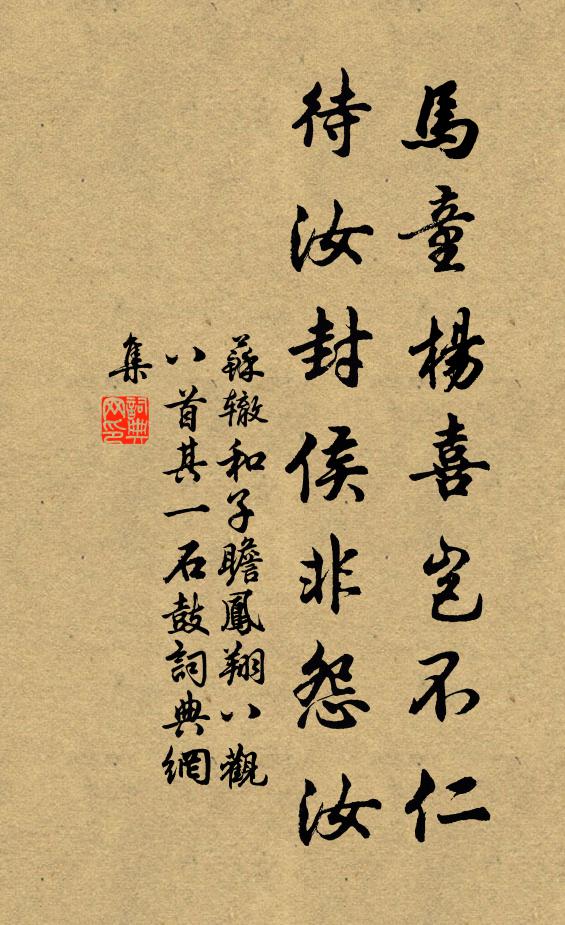 馬童楊喜豈不仁
待汝封侯非怨汝
蘇轍和子瞻鳳翔八觀
八首其一石鼓詞典網
集
詞典
网印